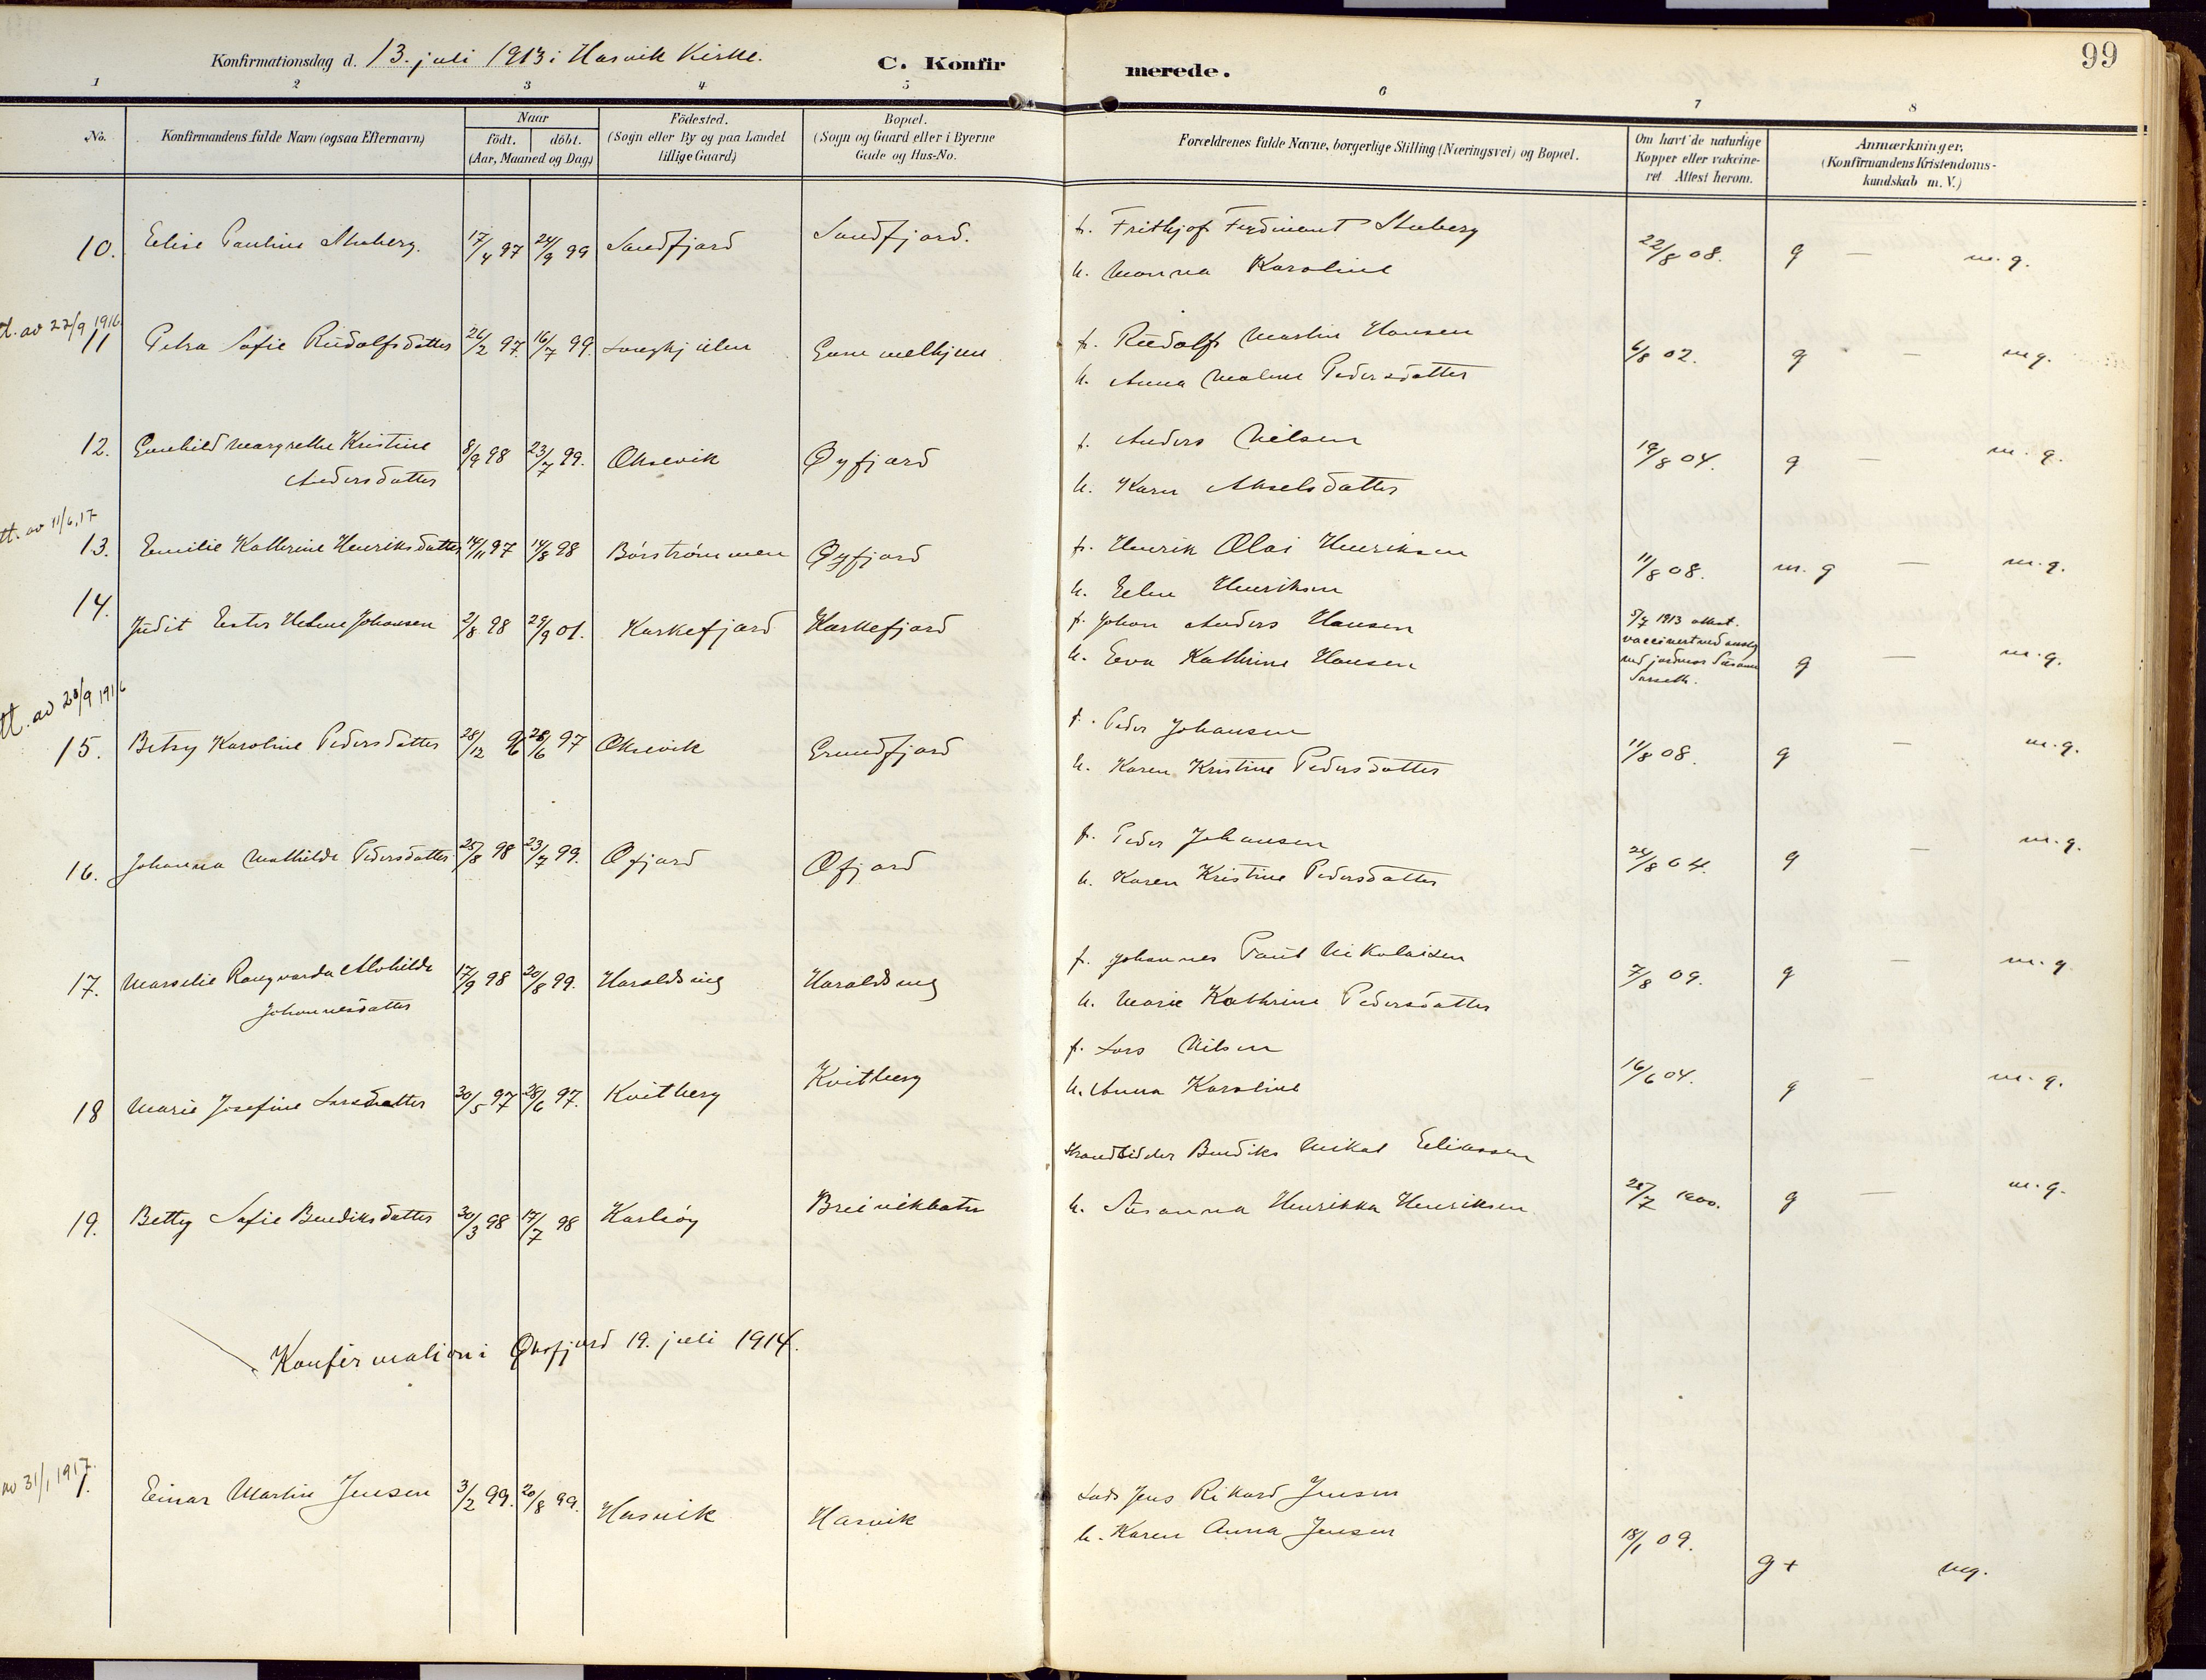 99
Konfirmationsdag d. 13. juli 1913 i Hasvik Kirke. C. Konfir merede.
1 2 3 4 5 6 7 8
No. Konfirmandens fulde Navn (ogsaa Efternavn) Naar födt. döbt. (Aar, Maaned og Dag) Födested. (Sogn eller By og paa Landet tillige Gaard) Bopæl. (Sogn og Gaard eller i Byerne Gade og Hus-No. Forældrenes fulde Navne, borgerlige Stilling (Næringsvei) og Bopæl. Om havt de naturlige Kopper eller vakcineret Attest herom. Anmærkninger. (Konfirmandens Kristendomskundskab m. V.)
10. Elise Pauline Stuberg. 17/4 97 24/9 99 Sandfjord Sandfjord. f. Frithjof Ferdinant Stuberg 22/8 08. g — m.g.
h. Monna Karoline
tt. av 22/9 1916.
11 Petra Sofie Rudolfsdatter 26/2 97. 16/7 99. Langhjulen f. Rudolf Martin Hansen 6/8 02. g — mg.
h. Anna Malene Pedersdatter
12. Gunhild Margrethe Kristine 8/9 98 23/7 99. Oksevik Øyfjord f. Anders Nilsen 19/8 04. g — m.g.
Andersdatter h. Karen Akselsdatter
tt. av 11/6.17
13. Emilie Kathrine Henriksdatter 14/11 97 14/8 98 Börströmmen Øyfjord f. Henrik Olai Henriksen 11/8 08. m.g — m.g.
h. Elen Henriksen
14. Judit Ester Helene Johansen 2/8 98 29/9 01. Karkefjord Karkefjord f. Johan Anders Hansen 5/7 1913 attest.
h. Eva Kathrine Hansen g — m.g.
tt. av 28/9 1916
15. Betsy Karoline Pedersdatter 28/12 96 28/6 97 Oksevik Grundfjord f. Peder Johansen 11/8 08. g — m.g.
h. Karen Kristine Pedersdatter
16. Johanna Mathilde Pedersdatter 25/8 98 23/7 99. Øfjord Øfjord f. Peder Johansen 24/8 04. g — m.g.
h. Karen Kristine Pedersdatter
17. Marselie Rangvarda Alvhilde 17/9 98 20/8 99. Haraldseng Haraldseng f. Johannes Paul Nikolaisen 7/8 09. g — m.g
Johannesdatter h. Marie Kathrine Pedersdatter
18 Marie Josefine Larsdatter 30/5 97 28/6 97. Kvitberg Kvitberg f. Lars Nilsen 16/6 04. g — m.g.
h. Anna Karoline
19. Betty Sofie Bendiksdatter 30/3 98 17/7 98 Karlsöy Breivikbotn Strandsidder Bendiks Mikal Eliassen 28/7 1900. g — m.g.
h. Susanna Henrikka Henriksen
Konfirmation i Øksfjord 19. juli 1914.
av 31/1 1917.
1. Einar Martin Jensen 3/2 99. 20/8 99. Hasvik Hasvik Jens Rikard Jensen 18/1 09. g+ mg.
h. Karen Anna Jensen